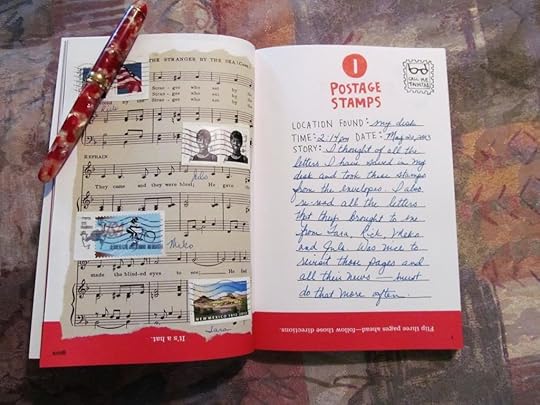 THE STRANGER BY THE SEA.
Stran - ger who sat by
Stran - ger who sat by
Stran - ger who sat by
REFRAIN
They came and they were blest; He gave
made the blind - ed eyes to see; He
NEW MEXICO 1912 2012
Meko
Sara
It's a hat.
1
POSTAGE
STAMPS
CALL ME
LOCATION FOUND: my desk
TIME: 2:14pm DATE: May 20, 2013
STORY: I thought of all the
letters I have saved in my
desk and took these stamps
from the envelopes. I also
re-read all the letters
that they brought to me
from Sara, Rick, Meko
and Jule. Was nice to
revisit those pages and
all their news — must
do that more often.
Flip three pages ahead—follow those directions.